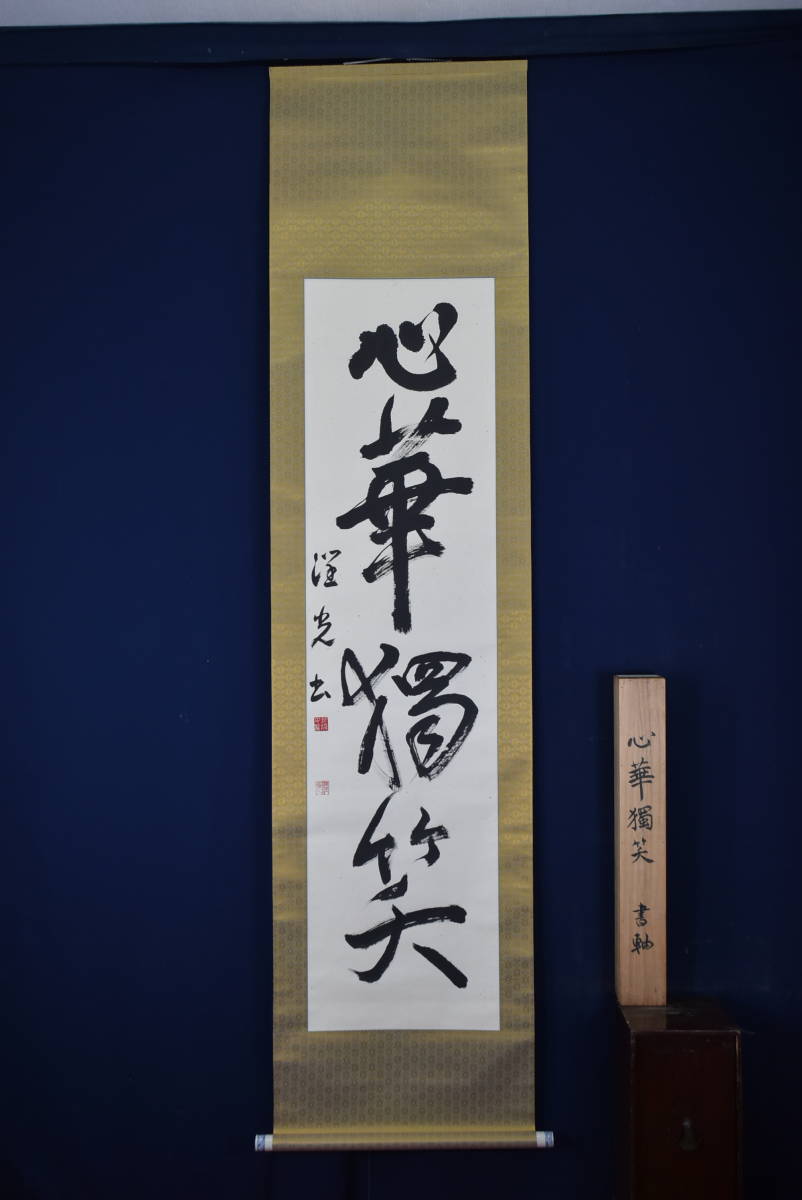 心華獨笑
光書
心華獨笑 書軸